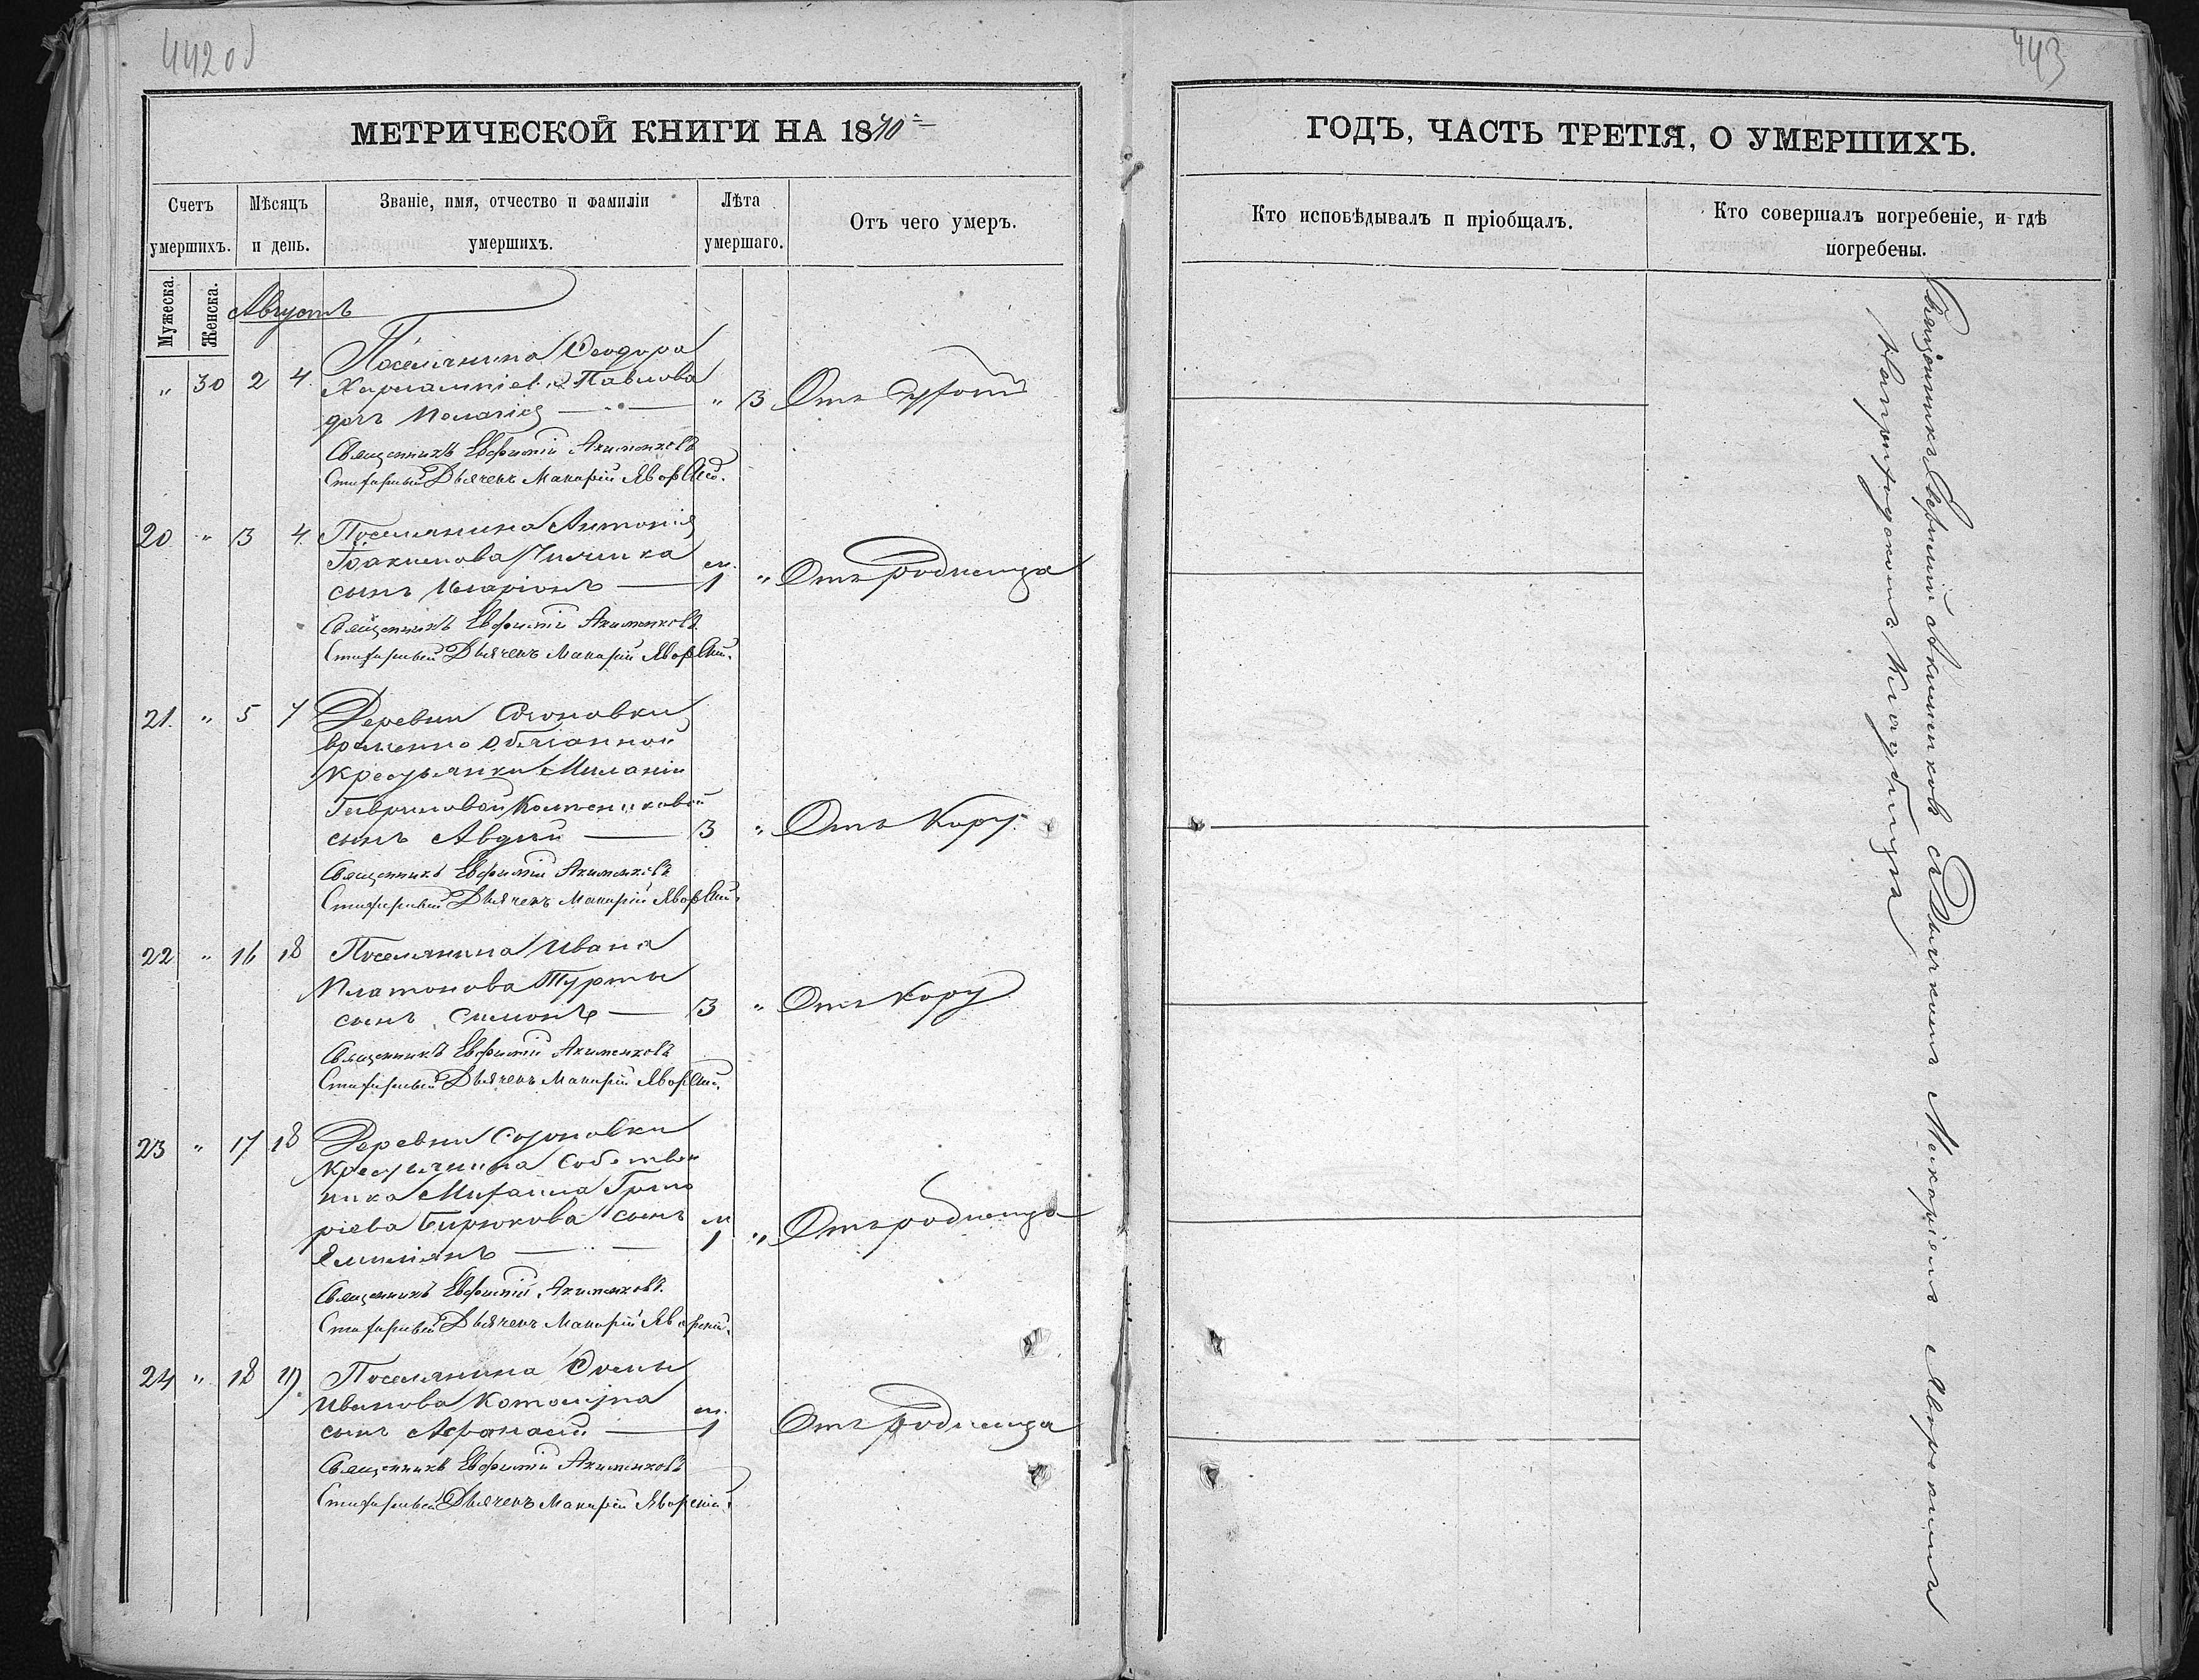 442 об
МЕТРИЧЕСКОЙ КНИГИ НА 1870
Счетъ умершихъ.
Мѣсяцъ и день.
Званіе, имя, отчество и фамиліи умершихъ.
Лѣта умершаго.
Отъ чего умеръ.
Мужеска.
Женска.
Августъ
" 30 2 4 Поселянина Ѳеодора
Харлампіева Павлова
дочь Пелагія " 3 Отъ
Священникъ Евфимій Акименковъ
Стихарный Дьячекъ Макарій Яворскій.
20 " 3 4 Поселянина Антонія
Іоакимова
сынъ Иларіонъ м. 1 " Отъ Родимца
Священникъ Евфимій Акименковъ
Стихарный Дьячекъ Макарій Яворскій.
21. " 5 7 Деревни
временно обязанной
крестьянки Меланіи
Гавриловой
сынъ Авдій 3 " Отъ Кору
Священникъ Евфимій Акименковъ
Стихарный Дьячекъ Макарій Яворскій.
22 " 16 18 Поселянина Ивана
Платонова Турты
сынъ Симонъ 3 " Отъ Кору
Священникъ Евфимій Акименковъ
Стихарный Дьячекъ Макарій Яворскій.
23 " 17 18 Деревни
крестьянина собствен
ника Михаила Григо
ріева Бирюкова сынъ м 1 " Отъ родимца
Емиліянъ
Священникъ Евфимій Акименковъ.
Стихарный Дьячекъ Макарій Яворскій.
24 " 18 19. Поселянина
Иванова
сынъ Афанасій м. 1 Отъ родимца
Священникъ Евфимій Акименковъ
Стихарный Дьячекъ Макарій Яворскій.
443
ГОДЪ, ЧАСТЬ ТРЕТІЯ, О УМЕРШИХЪ.
Кто исповѣдывалъ и пріобщалъ.
Кто совершалъ погребеніе, и гдѣ погребены.
Священникъ Евфимій Акименковъ съ Дьячкомъ Макаріемъ Яворскимъ
на приходскомъ кладбищѣ